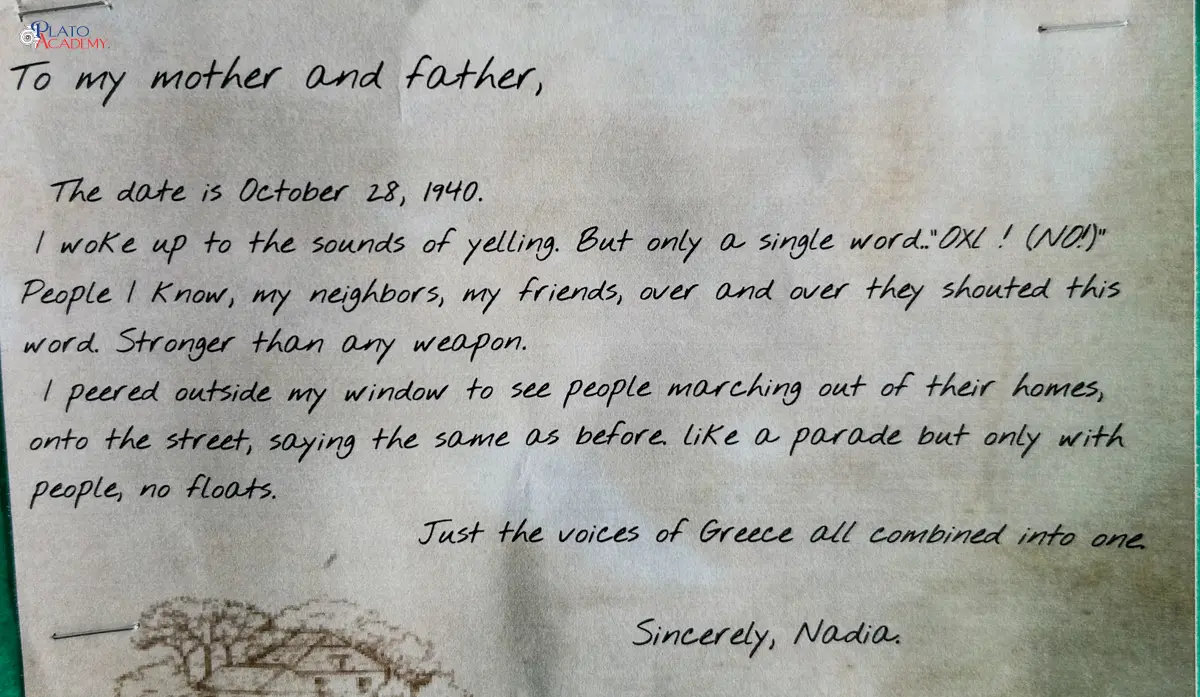 PLATO
ACADEMY.
To my mother and father,
The date is October 28, 1940.
I woke up to the sounds of yelling. But only a single word.."OXL ! (NO!)"
People I know, my neighbors, my friends, over and over they shouted this
word. Stronger than any weapon.
I peered outside my window to see people marching out of their homes,
onto the street, saying the same as before. like a parade but only with
people, no floats.
Just the voices of Greece all combined into one.
Sincerely, Nadia.